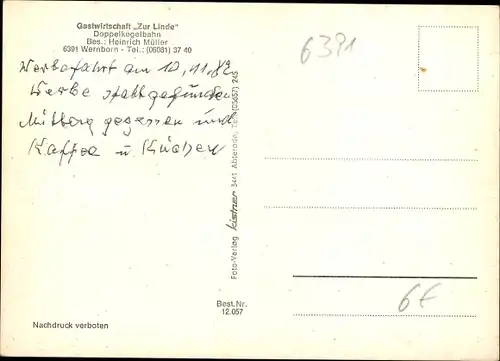 Gastwirtschaft „Zur Linde"
Doppelkegelbahn
Bes.: Heinrich Müller
6391 Wernborn - Tel.: (06081) 37 40
6391
Werbefahrt am 10.11.82
Werbe stattgefunden
Mittag gegessen und
Kaffee u Kuchen
Foto-Verlag kistner 3441 Abterode, Tel. (05657) 245
6€
Best.Nr.
12.057
Nachdruck verboten